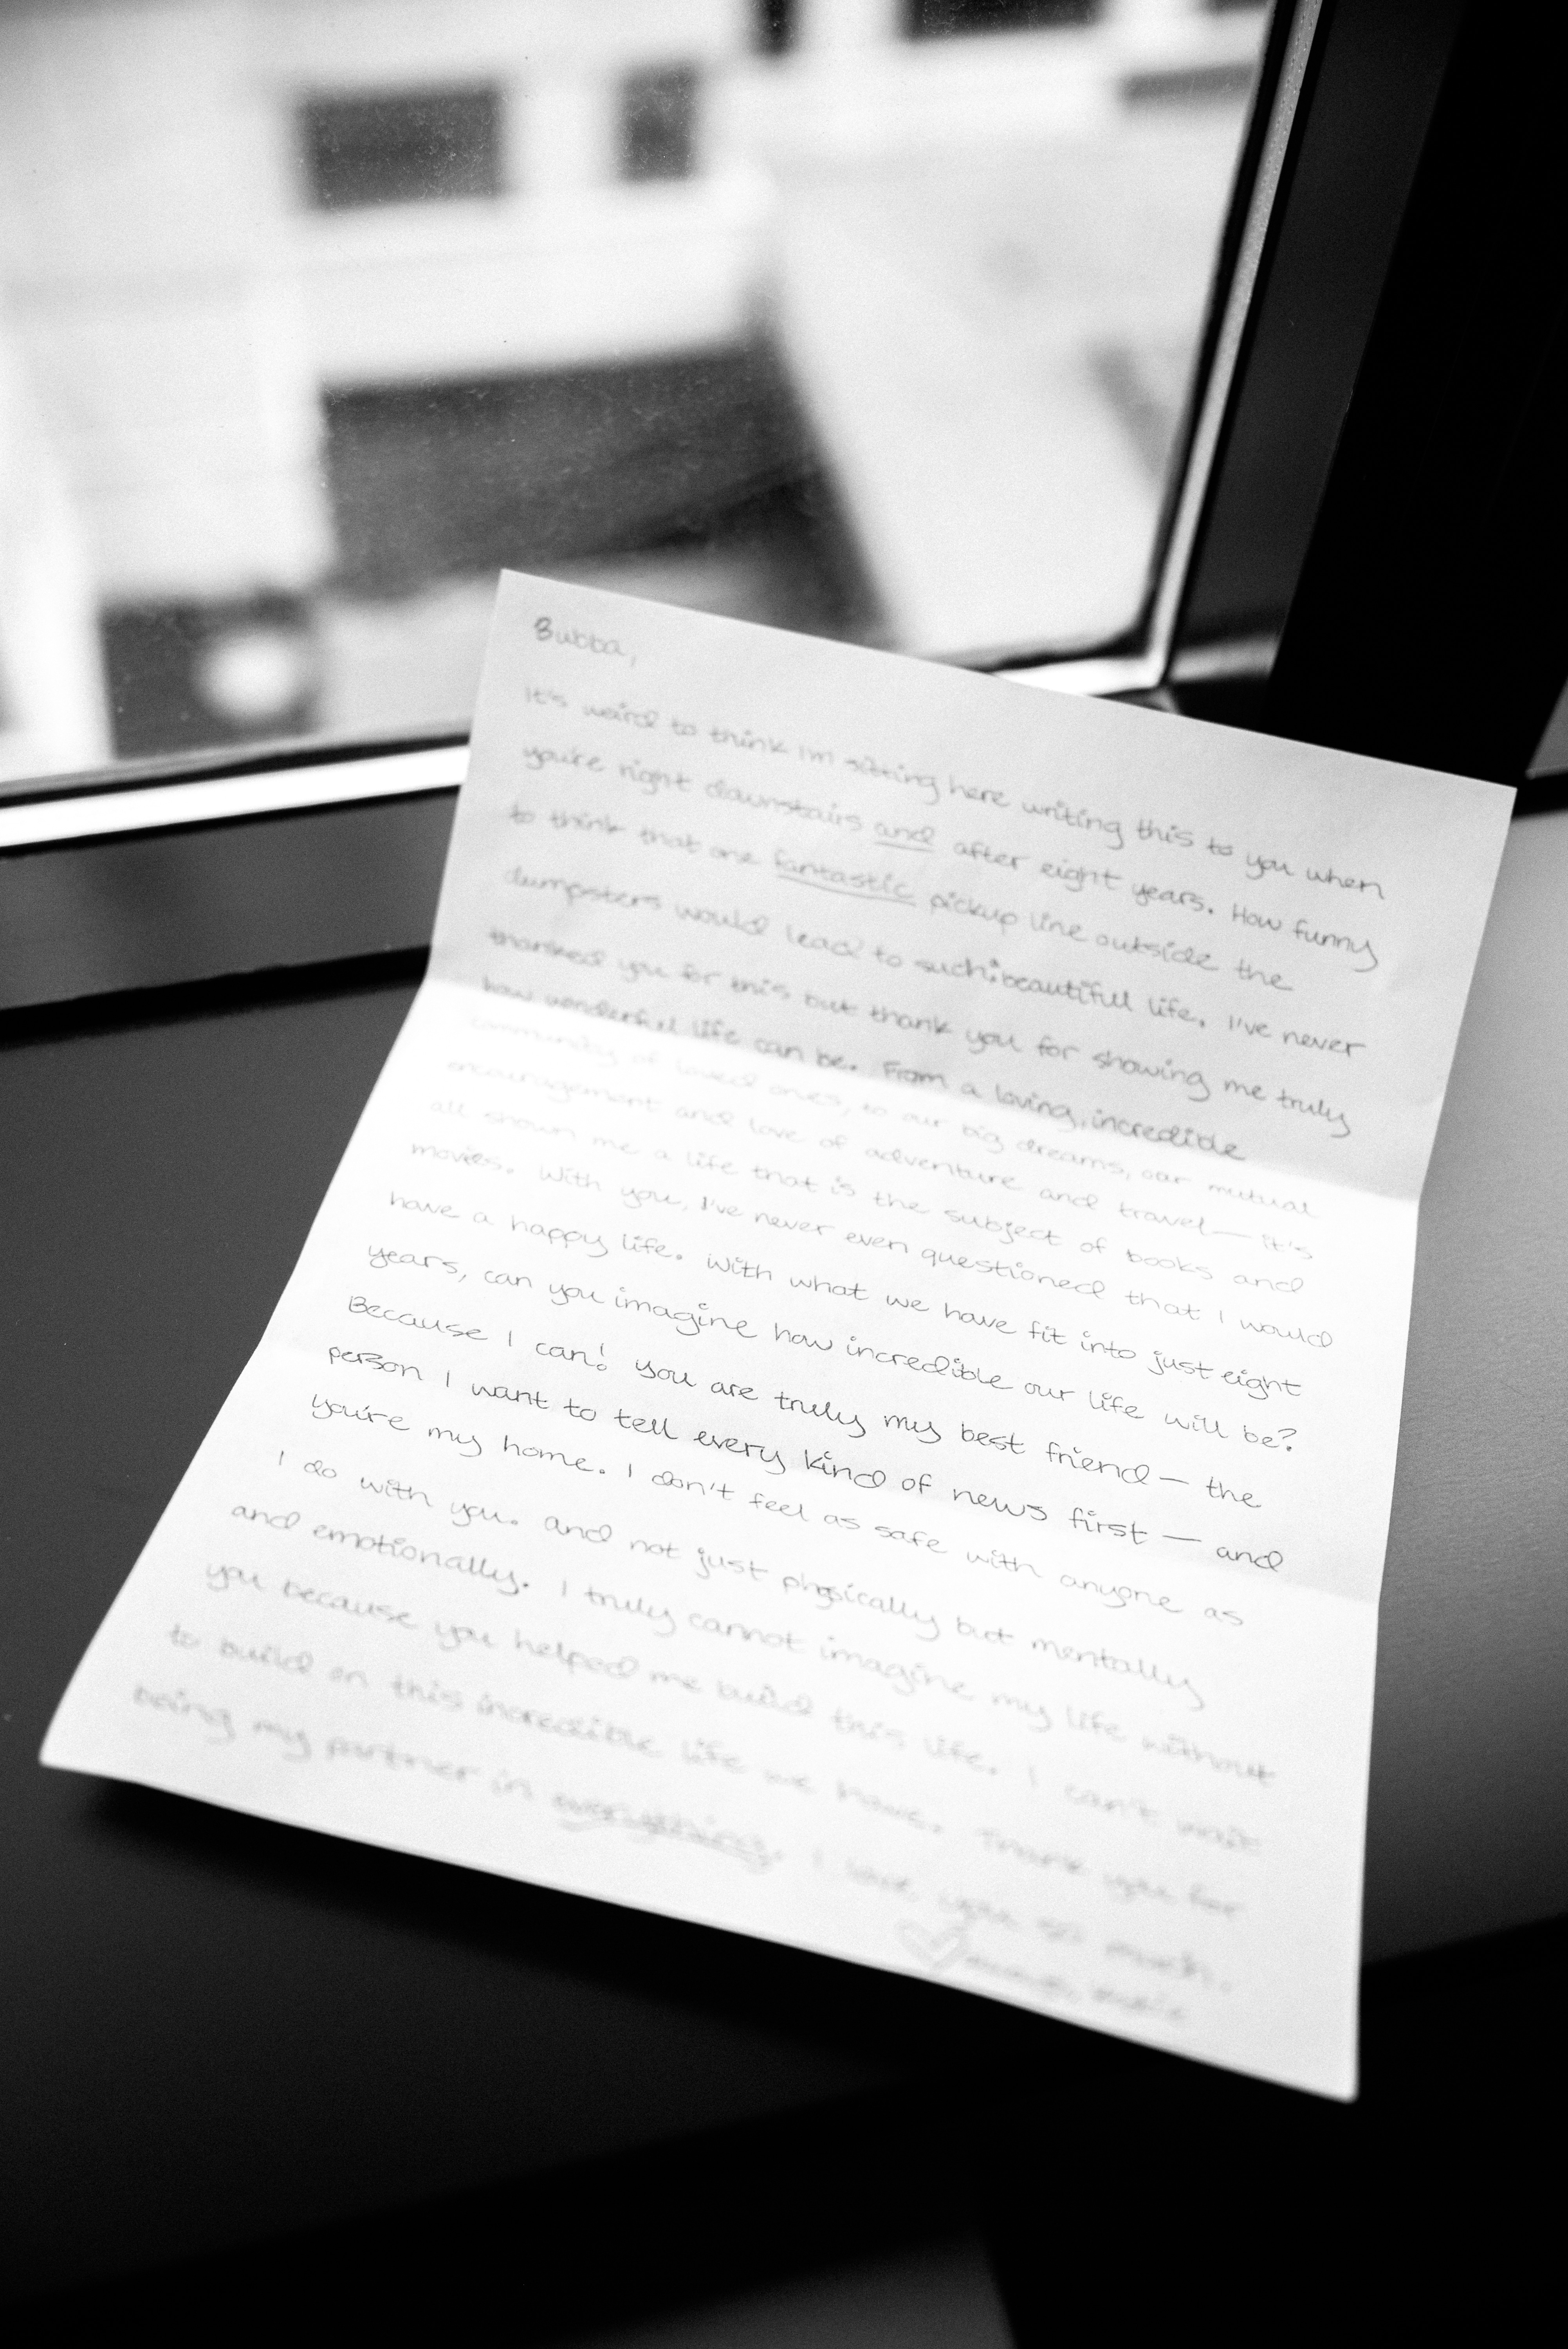 Bubba,
It's weird to think I'm sitting here writing this to you when
you're right downstairs and after eight years. How funny
to think that one fantastic pickup line outside the
dumpsters would lead to such beautiful life. I've never
thanked you for this, but thank you for showing me truly
how wonderful life can be. From a loving, incredible
community of loved ones, to our big dreams, our mutual
encouragement and love of adventure and travel— it's
all shown me a life that is the subject of books and
movies. With you, I've never even questioned that I would
have a happy life. With what we have fit into just eight
years, can you imagine how incredible our life will be?
Because I can! You are truly my best friend— the
person I want to tell every kind of news first — and
you're my home. I don't feel as safe with anyone as
I do with you. And not just physically but mentally
and emotionally. I truly cannot imagine my life without
you because you helped me build this life. I can't wait
to build on this incredible life we have. Thank you for
being my partner in everything. I love you so much.